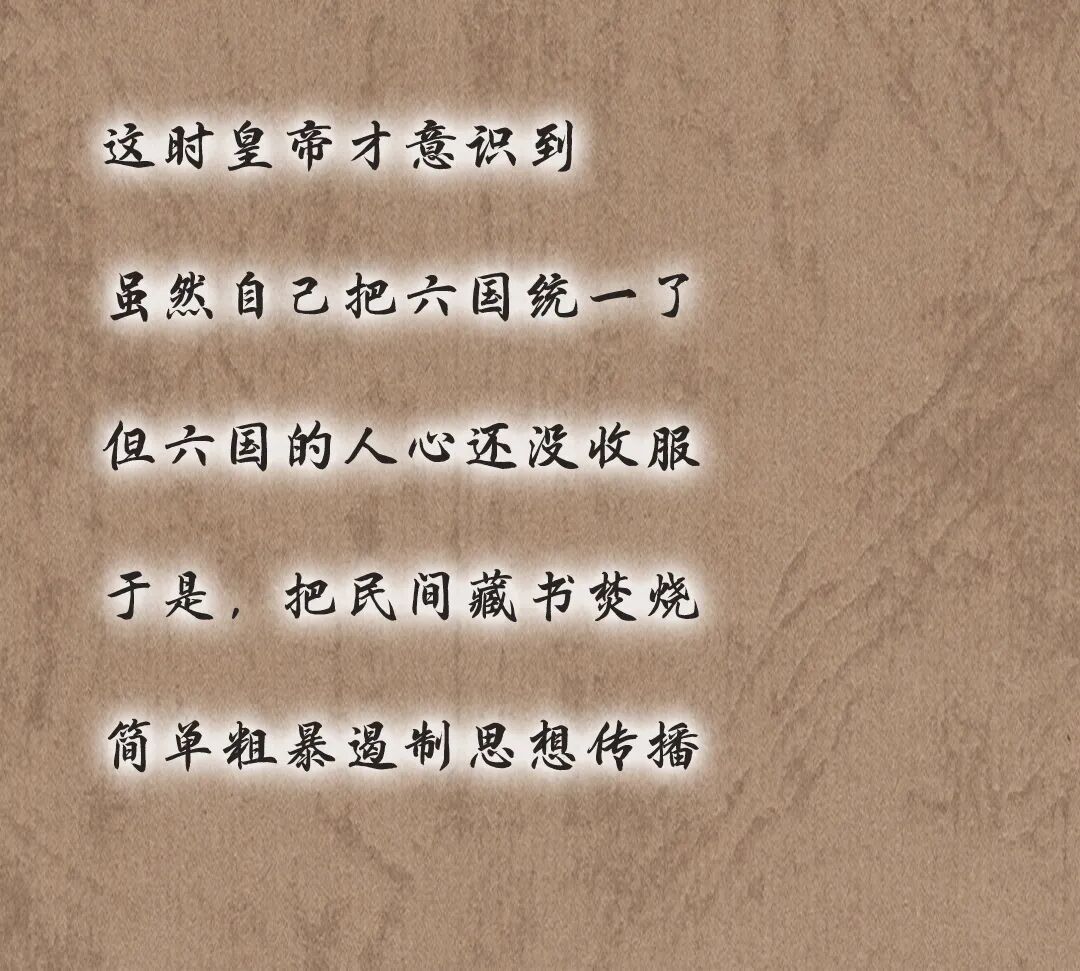 这时皇帝才意识到
虽然自己把六国统一了
但六国的人心还没收服
于是，把民间藏书焚烧
简单粗暴遏制思想传播